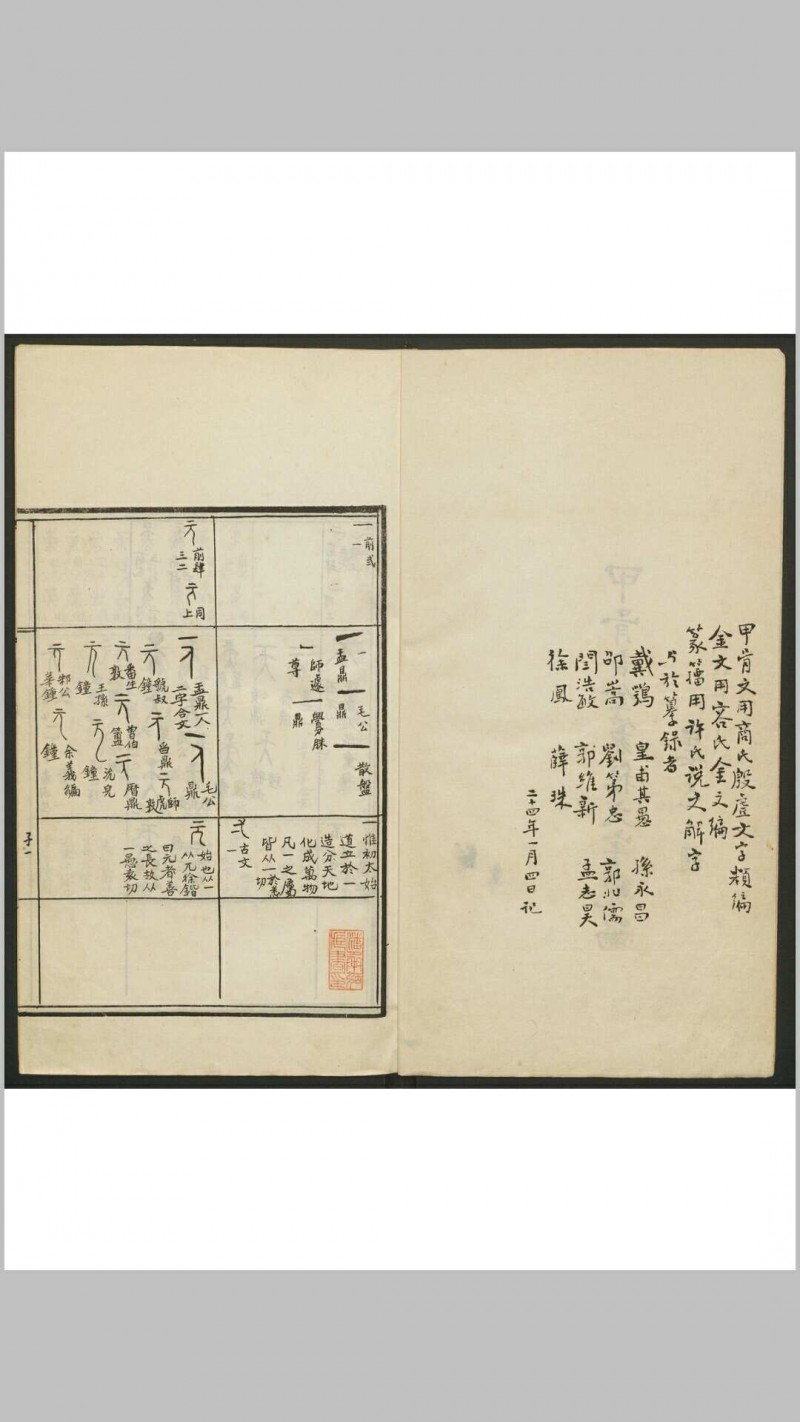 甲骨文用商氏殷虛文字類編
金文用容氏金文編
篆籀用許氏說文解字
與於摹錄者
戴鶚 皇甫其愚 孫永昌
邵嵩 劉第忠 郭兆儒
閆浩 郭維新 孟志昊
徐鳳 薛珠
二十四年一月四日記
一
前弍
一
一
盂鼎
毛公
鼎
散盤
師遽
尊
鼎
惟初太始
道立於一
造分天地
化成萬物
凡一之屬
皆从一
切
古文
一
元
前肆
三二
同
上
盂鼎一人
二字合文
毛公
鼎
虢叔
鐘
番生
王孫
鐘
邾公
華鐘
師虎
曶鼎
曾伯
簠
沇兒
鐘
余義編
鐘
曆鼎
始也从一
从兀徐鍇
曰元者善
之長故从
一愚袁切
子一